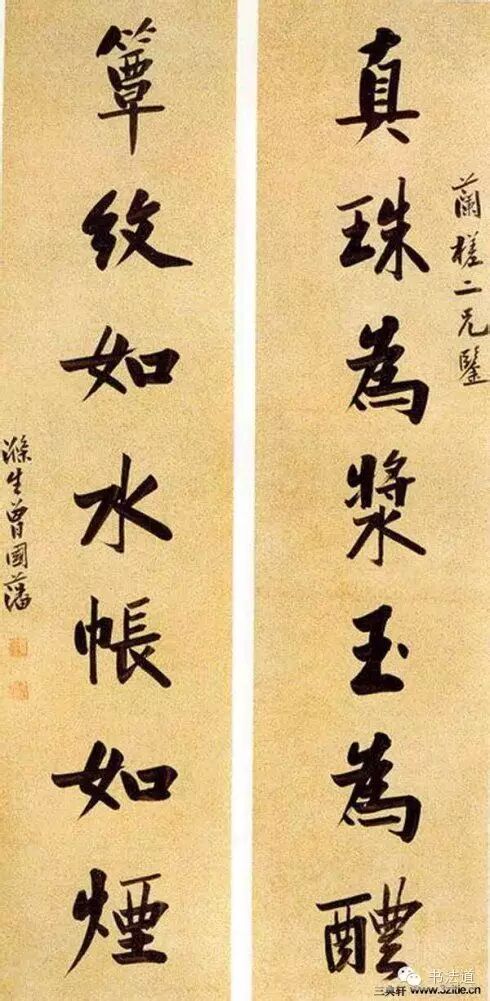 蘭槎二兄鑒
真珠為漿玉為醴
簟紋如水帳如煙
滌生曾國藩
三奥轩 www.3zitie.cn
书法道